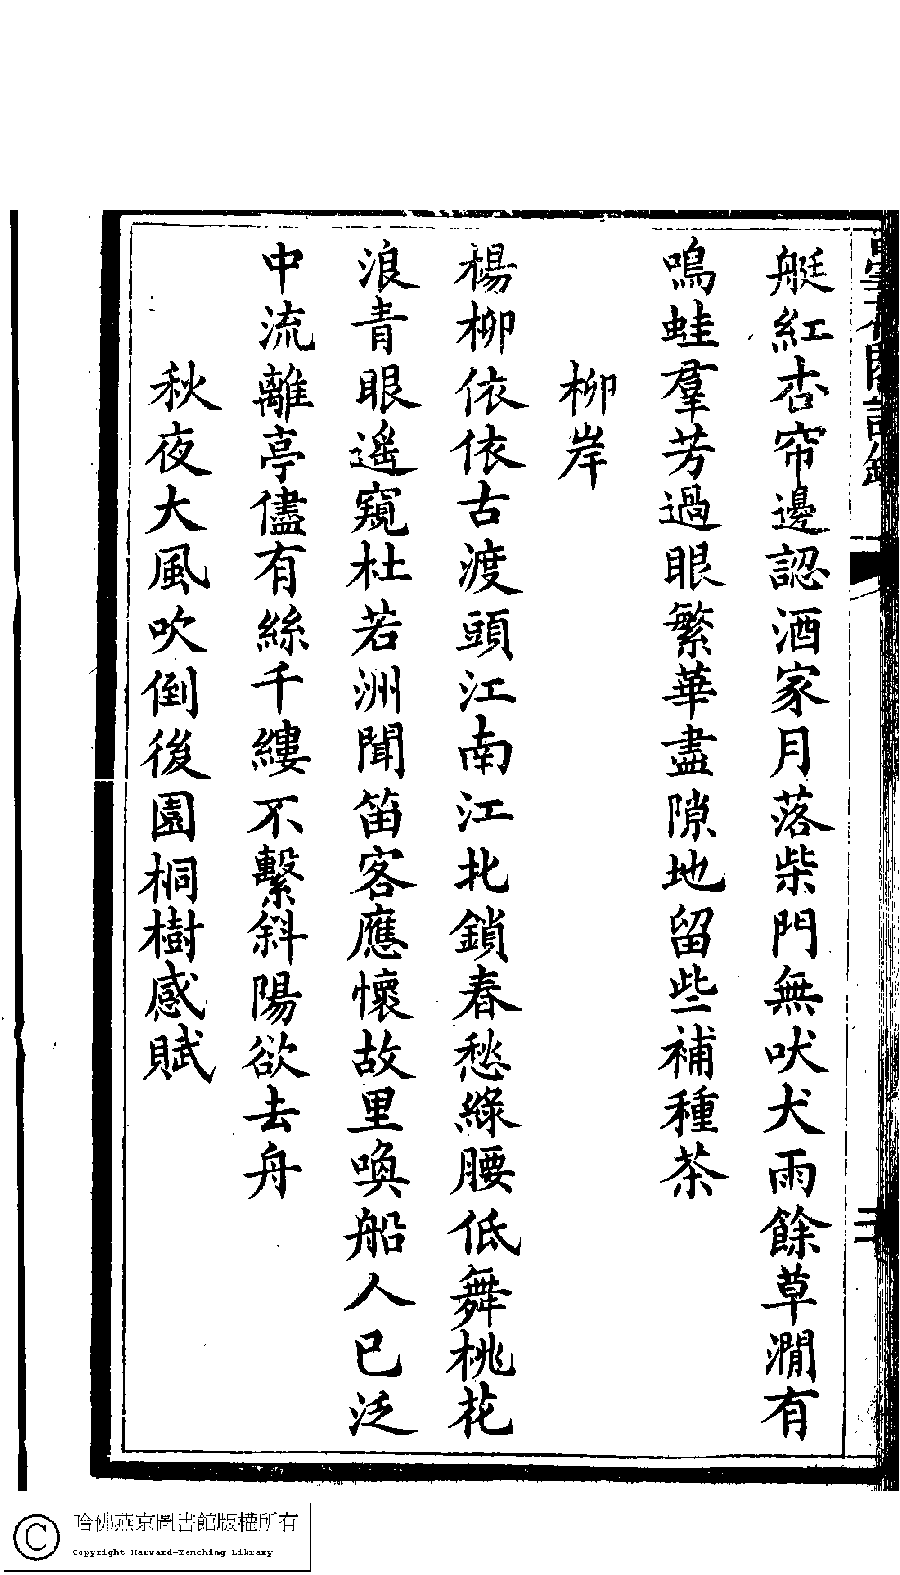 艇紅杏帘邊認酒家月落柴門無吠犬雨餘草澗有
鳴蛙羣芳過眼繁華盡隙地留些補種茶
柳岸
楊柳依依古渡頭江南江北鎖春愁綠腰低舞桃花
浪青眼遙窺杜若洲聞笛客應懷故里喚船人已泛
中流離亭儘有絲千縷不繫斜陽欲去舟
秋夜大風吹倒後園桐樹感賦
哈佛燕京圖書館版權所有
Copyright Harvard-Yenching Library